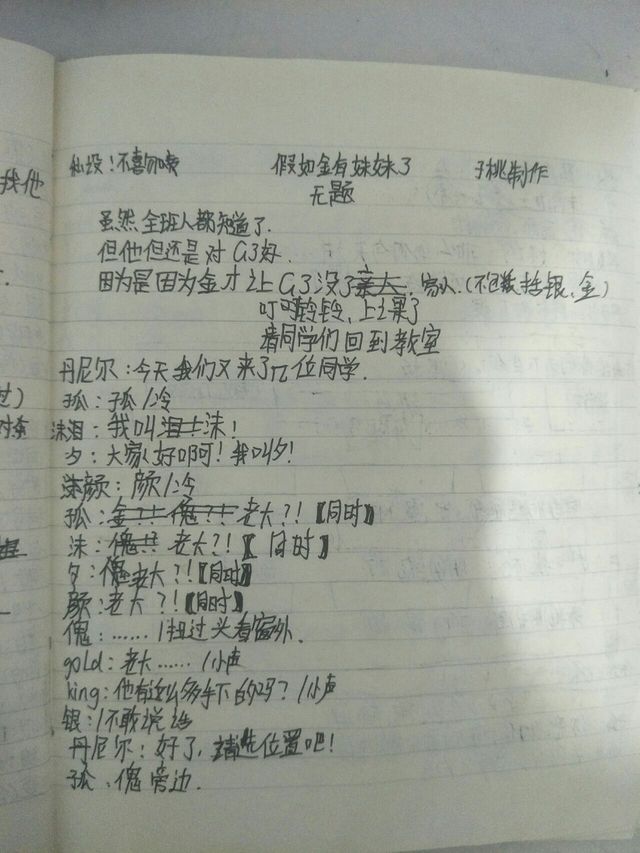 私设!不喜勿喷 假如金有妹妹了 子桃制作
无题
虽然全班人都知道了.
但他但还是对G3好.
因为是因为金才让G3没了亲人 家人.(不包括银、金)
叮叮铃铃、上课了
着同学们回到教室
丹尼尔:今天我们又来了几位同学.
孤:孤/冷
沫泪:我叫泪沫!
夕:大家好啊!我叫夕!
颜:颜/冷
孤:金?!傀?!老大?!【同时】
沫:傀 老大?!【同时】
夕:傀老大?!【同时】
颜:老大?!【同时】
傀:……/扭过头看窗外.
gold:老大……/小声
king:他有这么多手下的吗?/小声
银:/不敢说话
丹尼尔:好了,请选位置吧!
孤、傀旁边.
找他
过)